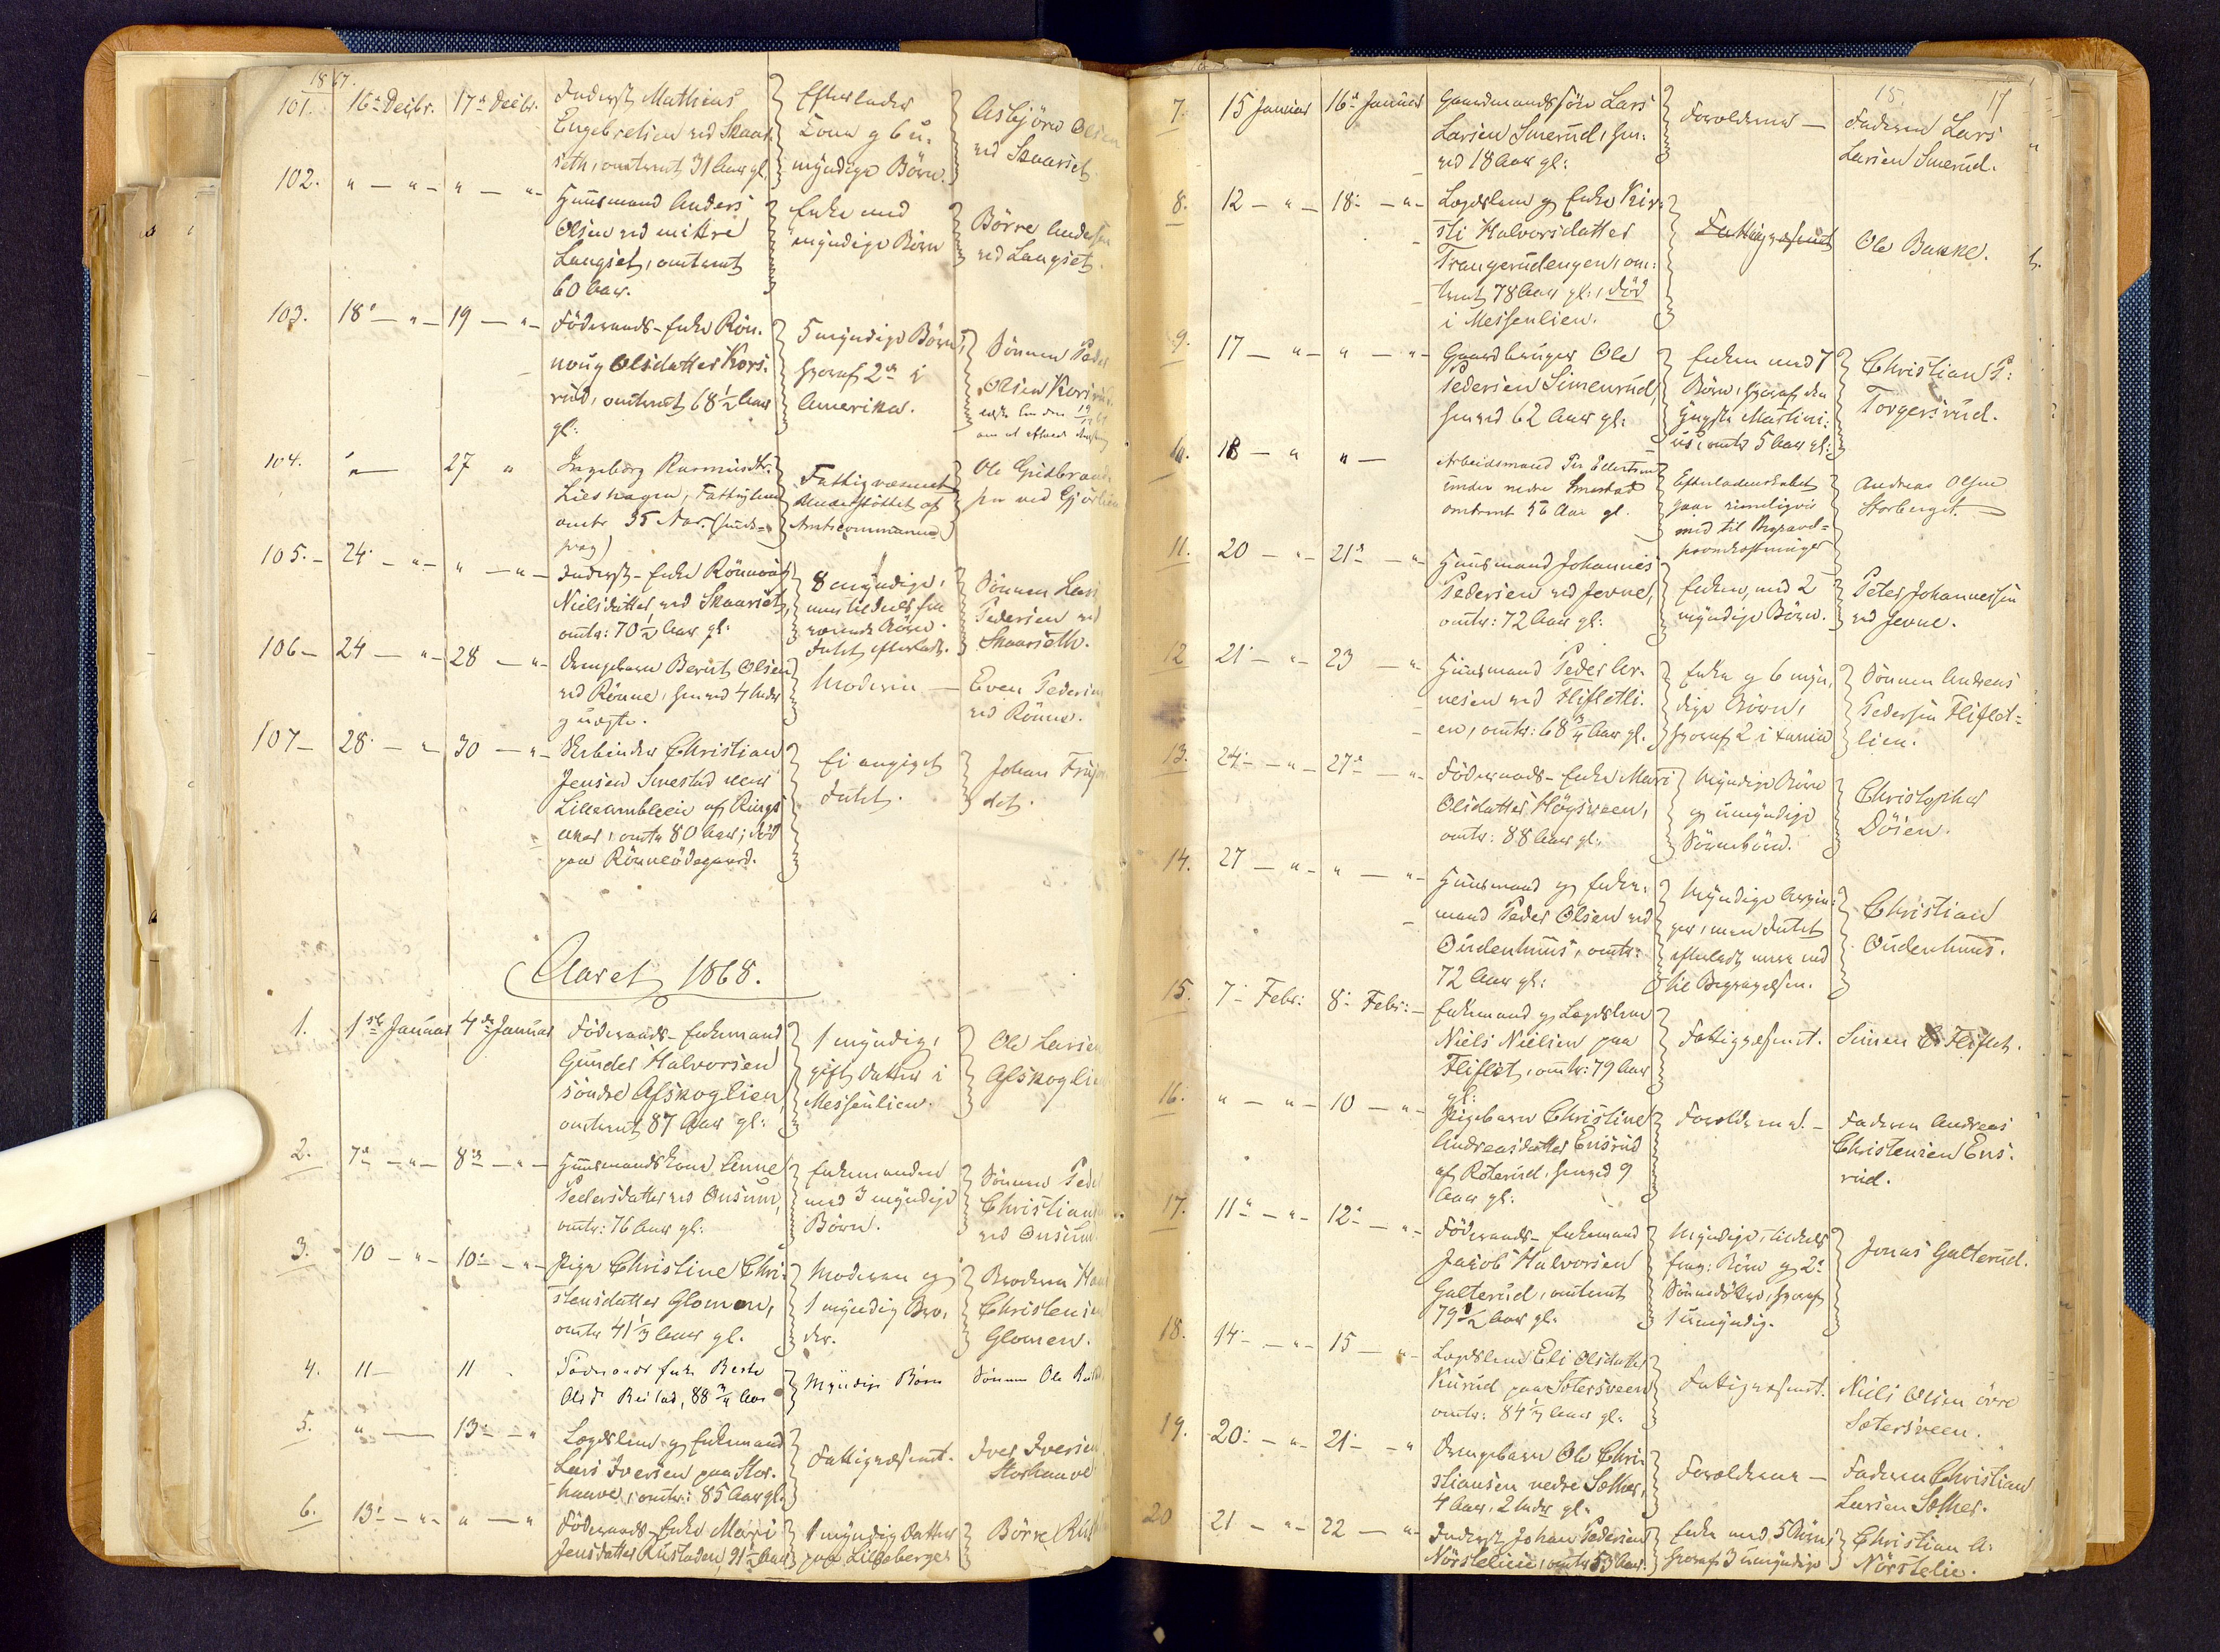 1867.
101. 16de Decbr. 17de Decbr. Inderst Mathias
Engebretsen ved Skaar-
seth, omtrent 31 Aar gl.
Efterlader
Kone og 6 u-
myndige Börn.
Asbjörn Olsen
ved Skaarset.
102. " — " — " — " — Huusmand Anders
Olsen ved mittre
Langset, omtrent
60 Aar.
Enke med
myndige Börn
Börre Andersen
ved Langset.
103. 18de — " — 19 — " — Föderaads-Enke Rön-
noug Olsdatter Kors-
rud, omtrent 68 1/2 Aar
gl:
5 myndige Börn,
hvoraf 2de i
Amerika.
Sönnen Peder
Olsen Korsrud.
104. " — 27 " Ingeborg Rasmusdtr.
Lieshagen, Fattiglem
omtr 35 Aar. (Sinds-
svag)
Fattigvæsenet
Understöttet af
Amtscommunen
Ole Gudbrand-
sen ved Gjörlien
105. — 24 — " — " — " — Inderst-Enke Rönnoug
Nielsdatter ved Skaarset,
omtr: 70 1/2 Aar gl:
8 myndige,
men tildeels fra-
værende Börn.
Intet efterladt.
Sönnen Lars
Pedersen ved
Skaarseth.
106 — 24 — " — 28 — " — Drengebarn Bernt Olsen
ved Rönne, henved 4 Mdr
g uægte.
Moderen —
Even Pedersen
ved Rönne.
107 — 28 — " — 30 — " — Skrbinder Christian
Jensen Smestad
Lilleambleie af Rings-
aker, omtr 80 Aar; död
paa Rönneödegaard.
Ei angivet
Intet.
Johan
Aaret 1868.
1. 1ste Januar 4de Januar Föderaads-Enkemand
Gunder Halvorsen
söndre Afskoglien,
omtrent 87 Aar gl:
1 myndig,
gift Datter i
Messenlien.
Ole Larsen
Afskoglien
2. 7de — " — 8de — " — Huusmandskone Lenne
Pedersdatter ved Onsum,
omtr: 76 Aar gl:
Enkemanden
med 3 myndige
Börn.
Sönnen Peder
Christiansen
ved Onsum
3. 10 — " — 10de — " — Pige Christine Chri-
stensdatter Glomen,
omtr 41 1/3 Aar gl.
Moderen og
1 myndig Bro-
der.
Broderen Hans
Christensen
Glomen.
4. 11 — 11 Föderaads Enke Berte
Olsdr Reistad, 88 3/4 Aar
Myndige Börn
Sönnen Ole
5. " — 13de — " Lægdslem og Enkemand
Lars Iversen paa Stor-
haave, omtr: 85 Aar gl.
Fattigvæsenet.
Iver Iversen
Storhaave
6. 13de — " — " — " Föderaads-Enke Mari
Jensdatter Rustaden, 91 1/2 Aar
1 myndig Datter
paa Lilleberget
Börre
15. 17
7. 15 Januar 16de Januar Gaardmandssön Lars
Larsen Smerud, hen-
ved 18 Aar gl:
Forældrene —
Faderen Lars
Larsen Smerud.
8. 12 — " — 18de — " — Lægdslem og Enke Kir-
sti Halvorsdatter
Trangerudengen, om-
trent 78 Aar gl:, död
i Messenlien.
Fattigvæsenet
Ole Bakke.
9. 17 — " — " — " — Gaardbruger Ole
Pedersen Simenrud,
henved 62 Aar gl:
Enken med 7
Börn, hvoraf den
yngste Martini-
us, omtr 5 Aar gl:
Christian P:
Torgersrud.
10. 18 — " " — Arbeidsmand Per Edertsen
under nedre Smestad
omtrent 56 Aar gl.
Efterladenskabet
gaar rimeligvis
med til Begravel-
sesomkostninger
Andreas Olsen
Storberget.
11. 20 — " — 21de — " Huusmand Johannes
Pedersen ved Jevne,
omtr: 72 Aar gl:
Enken, med 2
myndige Börn.
Peter Johannessen
ved Jevne.
12 21 — " — 23 — " Huusmand Peder Ar-
nesen ved Flifletli-
en, omtr: 68 3/4 Aar gl.
Enke og 6 myn-
dige Börn,
hvoraf 2 i
Sönnen Andreas
Pedersen Fliflet-
lien.
13. 24 — " — 27de — " Föderaads-Enke Mari
Olsdatter Högsveen,
omtr: 88 Aar gl:
Myndige Börn
og umyndige
Sönnebörn.
Christopher
Döien.
14. 27 — " — " — " — Huusmand og Enke-
mand Peder Olsen ved
Oudenhuus, omtr:
72 Aar gl:
Myndige Arvin-
ger, men Intet
efterladt uden ved
til Begravelsen.
Christian
Oudenhuus.
15. 7de Febr: 8de Febr: — Enkemand og Lægdslem
Niels Nielsen paa
Fliflet, omtr: 79 Aar
gl:
Fattigvæsenet.
Simen Fliflet.
16. " — " — 10 — " — Pigebarn Christine
Andreasdatter Ensrud
af Roterud, henved 9
Aar gl:
Forældrene. —
Faderen Andreas
Christensen Ens-
rud.
17. 11de — " — 12de — " — Föderaads-Enkemand
Jacob Halvorsen
Galterud, omtrent
79 1/2 Aar gl.
Myndige, tildeels
frav: Börn og 2de
Sönnedöttre, hvoraf
1 umyndig.
Jonas Galterud.
18. 14 — " — 15 — " — Lægdslem Eli Olsdatter
Kurud paa Sotersveen
omtr: 84 1/3 Aar gl:
Fattigvæsenet.
Niels Olsen övre
Sotersveen.
19. 20de — " — 21 — " Drengebarn Ole Chri-
stiansen nedre Sother,
4 Aar, 2 Mdr gl:
Forældrene —
Faderen Christian
Larsen Sother.
20 21 — " — 22 — " — Inderst Johan Pedersen
Nörstelien, omtr 53 Aar.
Enke med 5 Börn,
hvoraf 3 umyndige
Christian A:
Nörstelie.